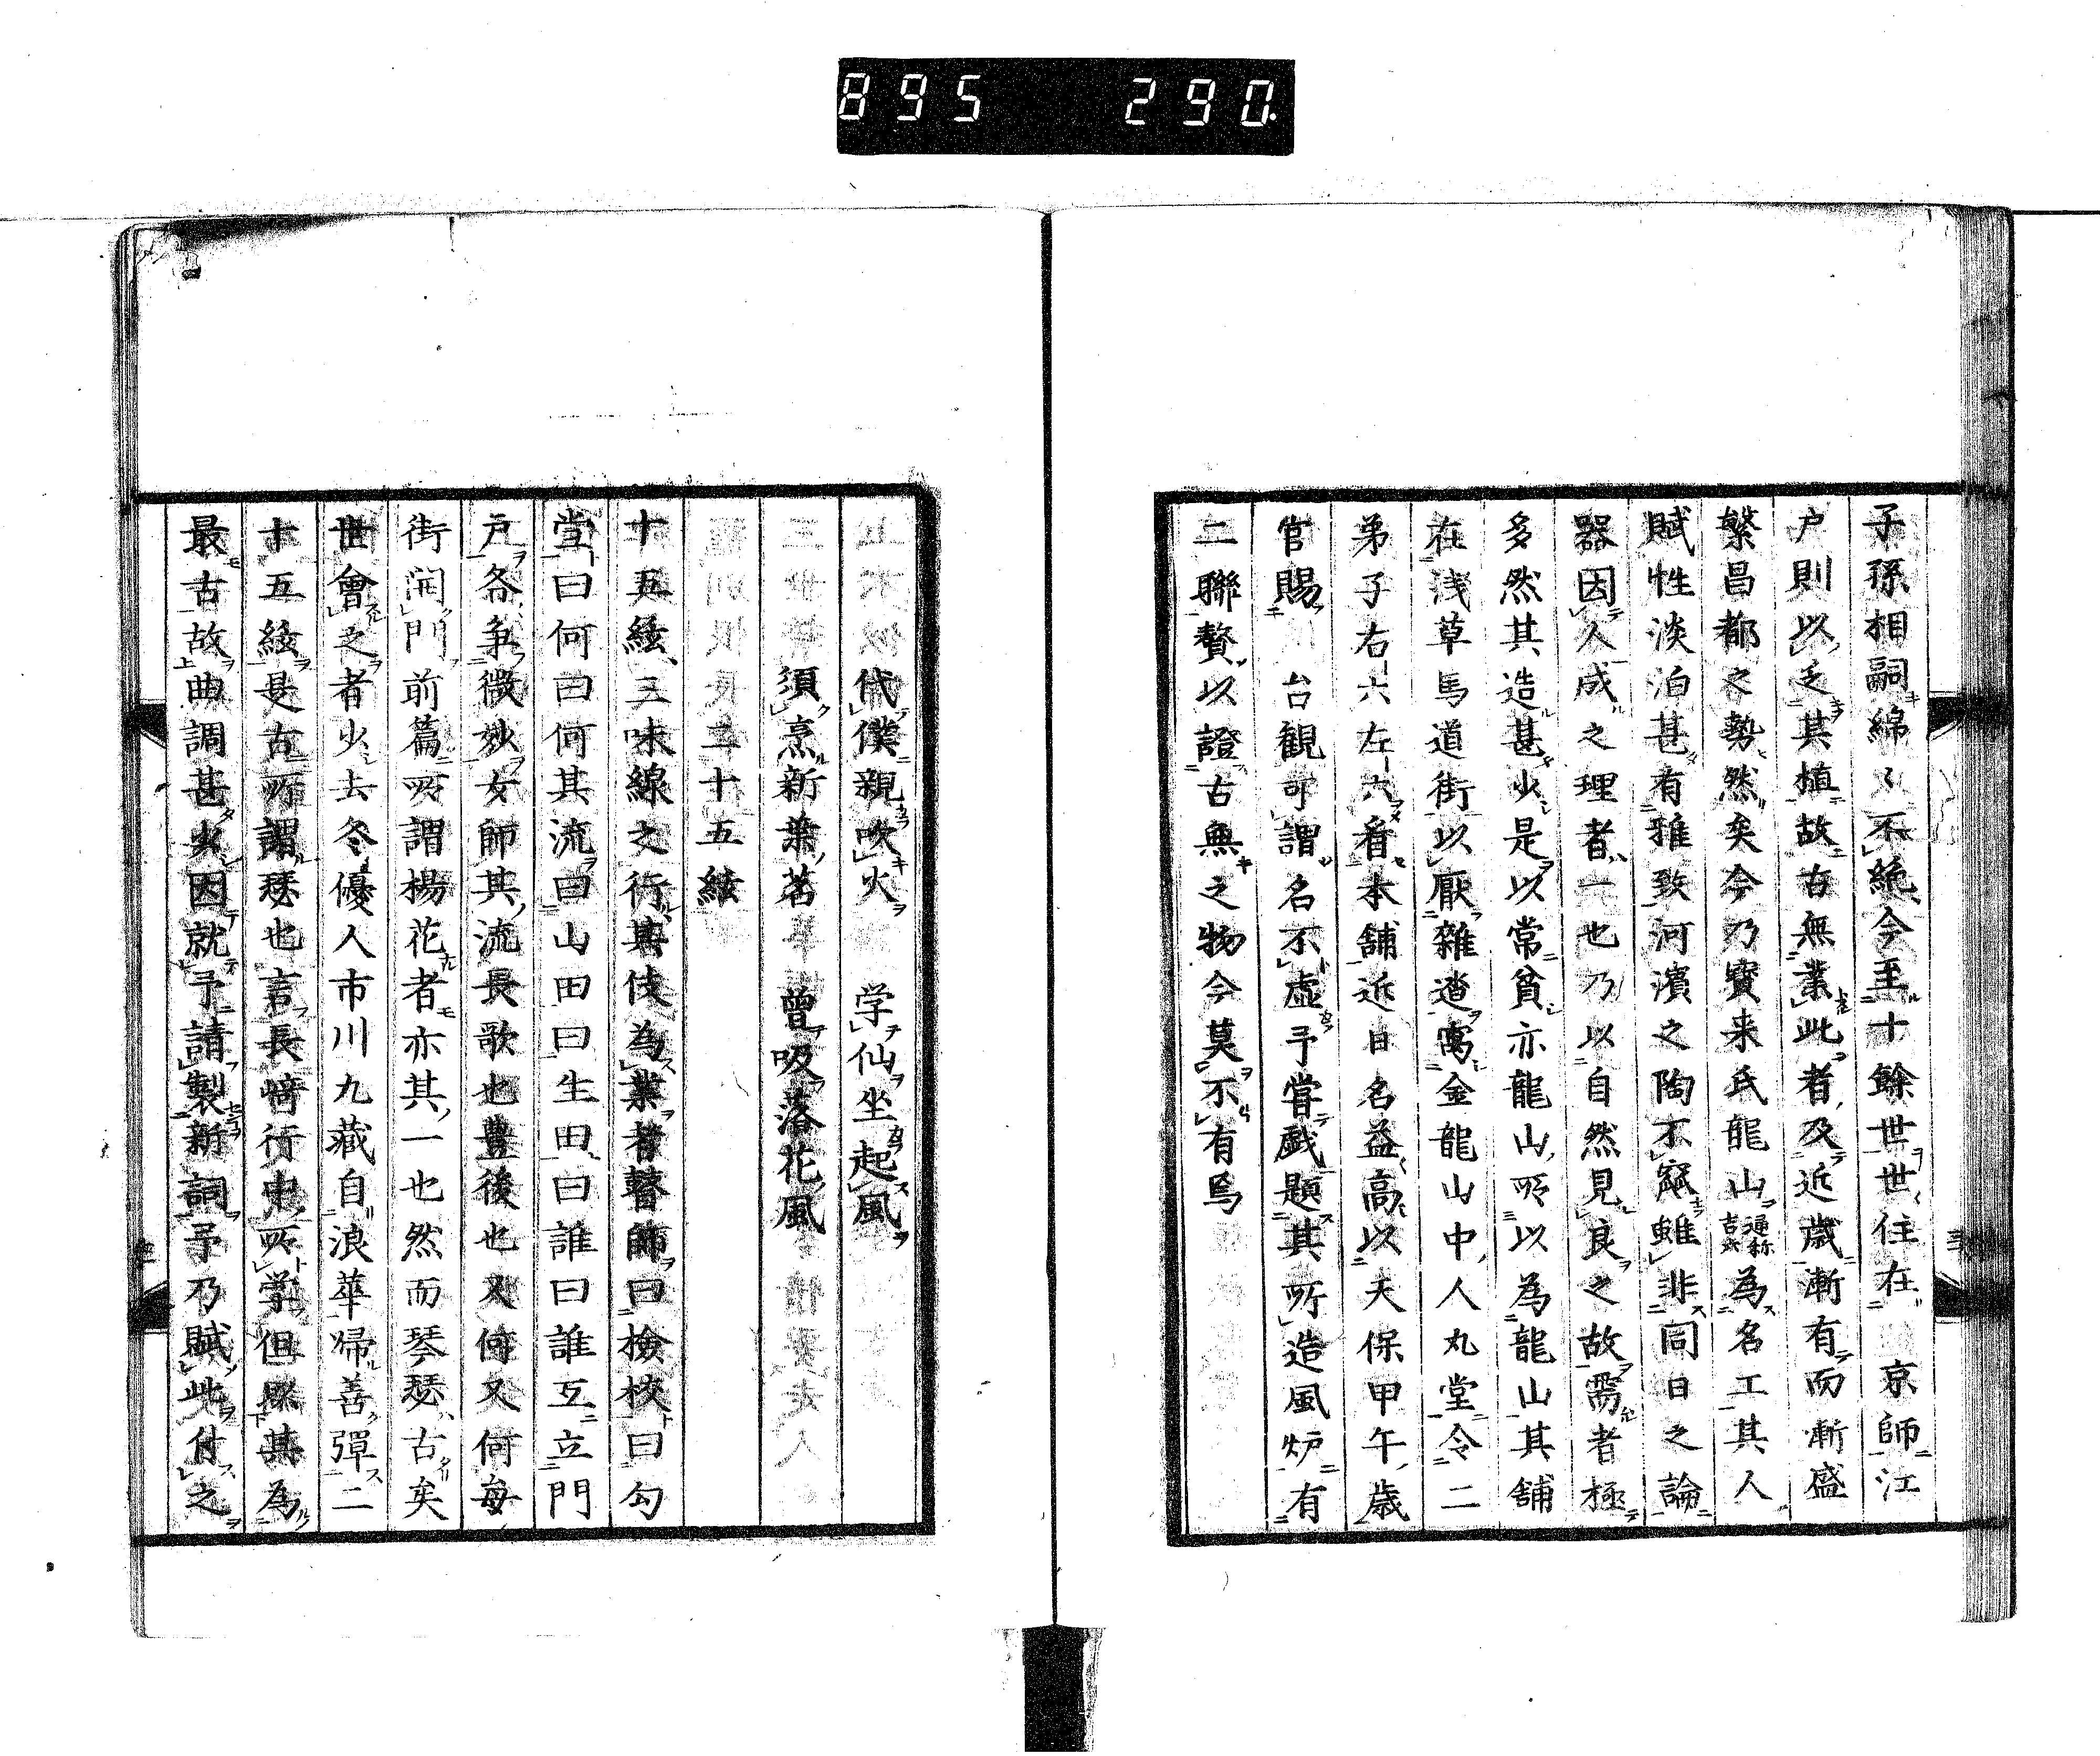 895 290.
子孫相嗣綿〻不絶今至十餘世世住在 京師江
戸則以乏其植故古無業此者及近歳漸有而漸盛
繁昌都之勢然矣今乃寳来氏龍山通称吉六為名工其人
賦性淡泊甚有雅致河濱之陶不窳雖非同日之論
器因人成之理者一也乃以自然見良之故需者極
多然其造甚少是以常貧亦龍山所以為龍山其舗
在浅草馬道街以厭雜遝寓金龍山中人丸堂令二
弟子右六左六看本舗近日名益高以天保甲午歳
官賜 台観可謂名不虚予嘗戯題其所造風炉有
二聯贅以證古無之物今莫不有焉
代僕親吹火 学仙坐起風
須烹新葉茗 曽吸落花風
二十五絃
十五絃三味線之行其伎為業者瞽師曰檢校曰勾
堂曰何曰何其流曰山田曰生田曰誰曰誰互立門
戸各争微妙女師其流長歌也豊後也又何又何毎
街開門前篇所謂楊花者亦其一也然而琴瑟古矣
世會之者少去冬優人市川九藏自浪華帰善彈二
十五絃是古所謂瑟也言長﨑行中所学但探其為
最古故曲調甚少因就予請製新詞予乃賦此付之